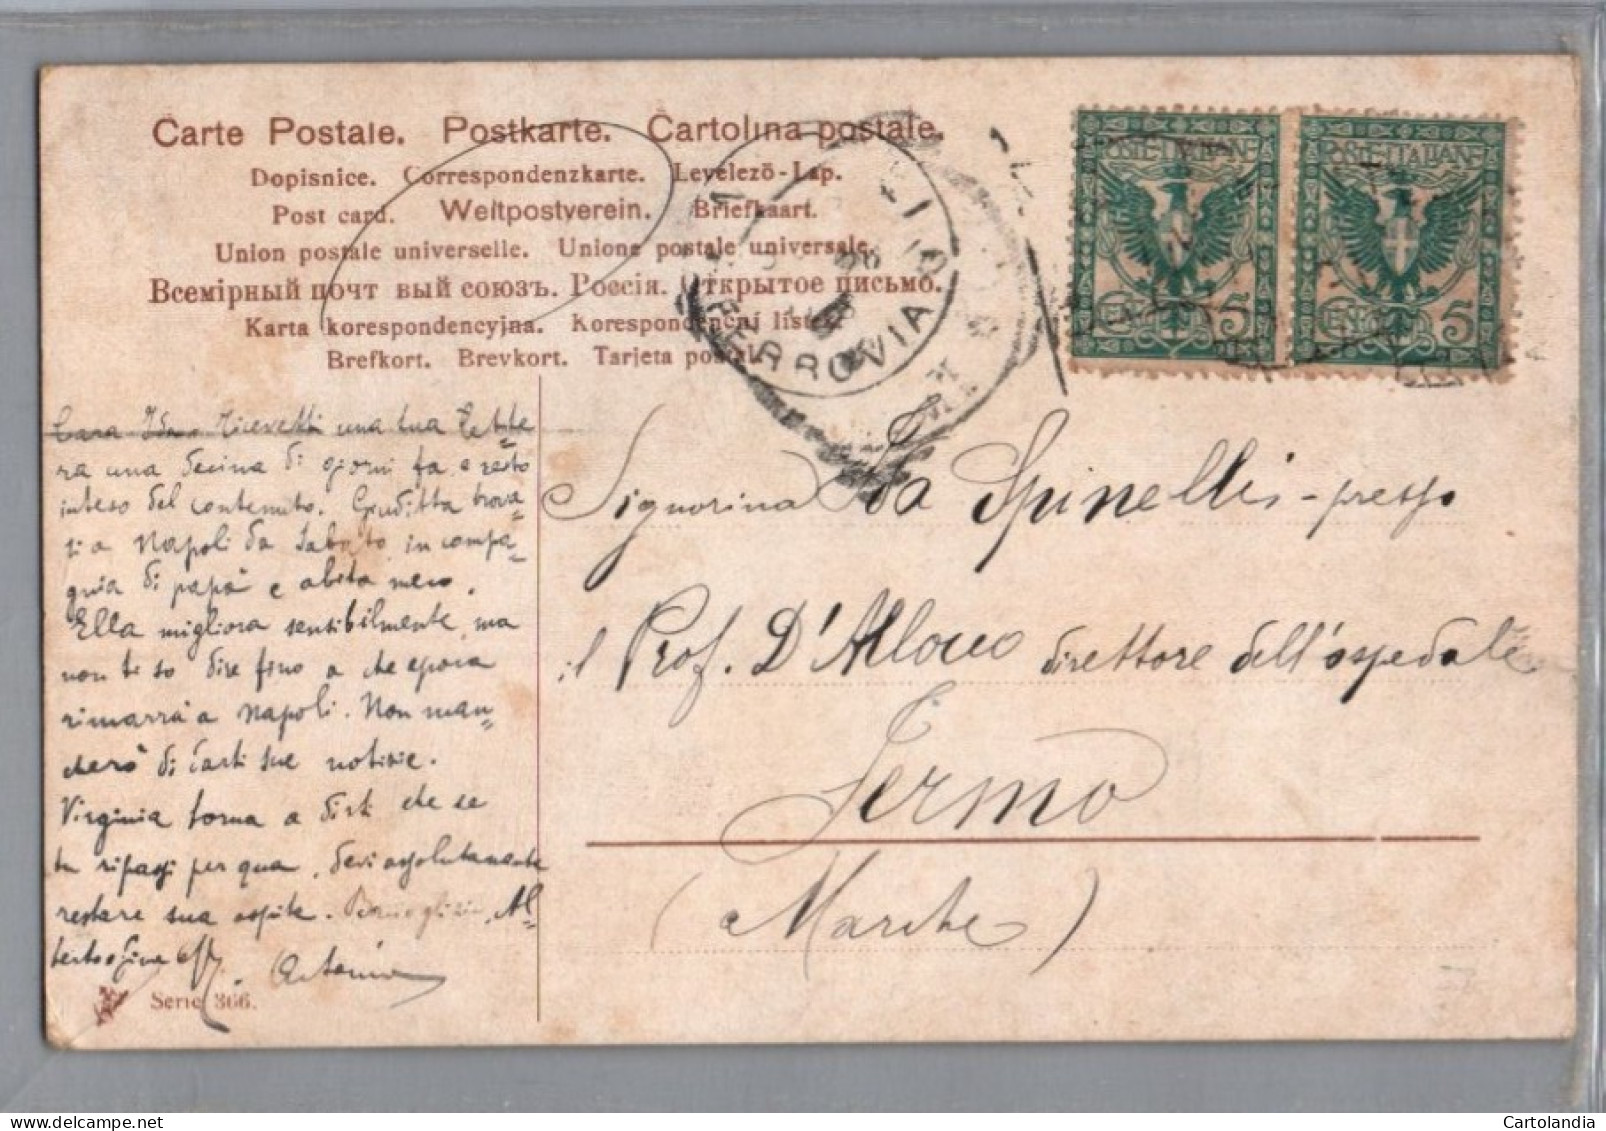 Carte Postale. Postkarte. Cartolina postale.
Dopisnice. Correspondenzkarte. Levelezö-Lap.
Post card. Weltpostverein. Briefkaart.
Union postale universelle. Unione postale universale.
Всемірный почт вый союзъ. Россія. Открытое письмо.
Karta korespondencyjna. Korespondenční listek.
Brefkort. Brevkort. Tarjeta postal.
POSTE ITALIANE
CENT. 5
POSTE ITALIANE
CENT. 5
FERROVIA
Cara Ida. Ricevetti una tua lette=
ra una decina di giorni fa e resto
inteso del contenuto. Giuditta trova=
si a Napoli da Sabato in compa=
gnia di papà e abita meco.
Ella migliora sensibilmente, ma
non ti so dire fino a che epoca
rimarrà a Napoli. Non man=
cherò di darti sue notizie.
Virginia torna a dirti che se
tu ripassi per qua, devi assolutamente
restare sua ospite. Al=
Antonio
Serie 366.
Signorina Ida Spinelli - presso
il Prof. D'Alloceo direttore dell'ospedale
Fermo
(Marche)
Cartolandia